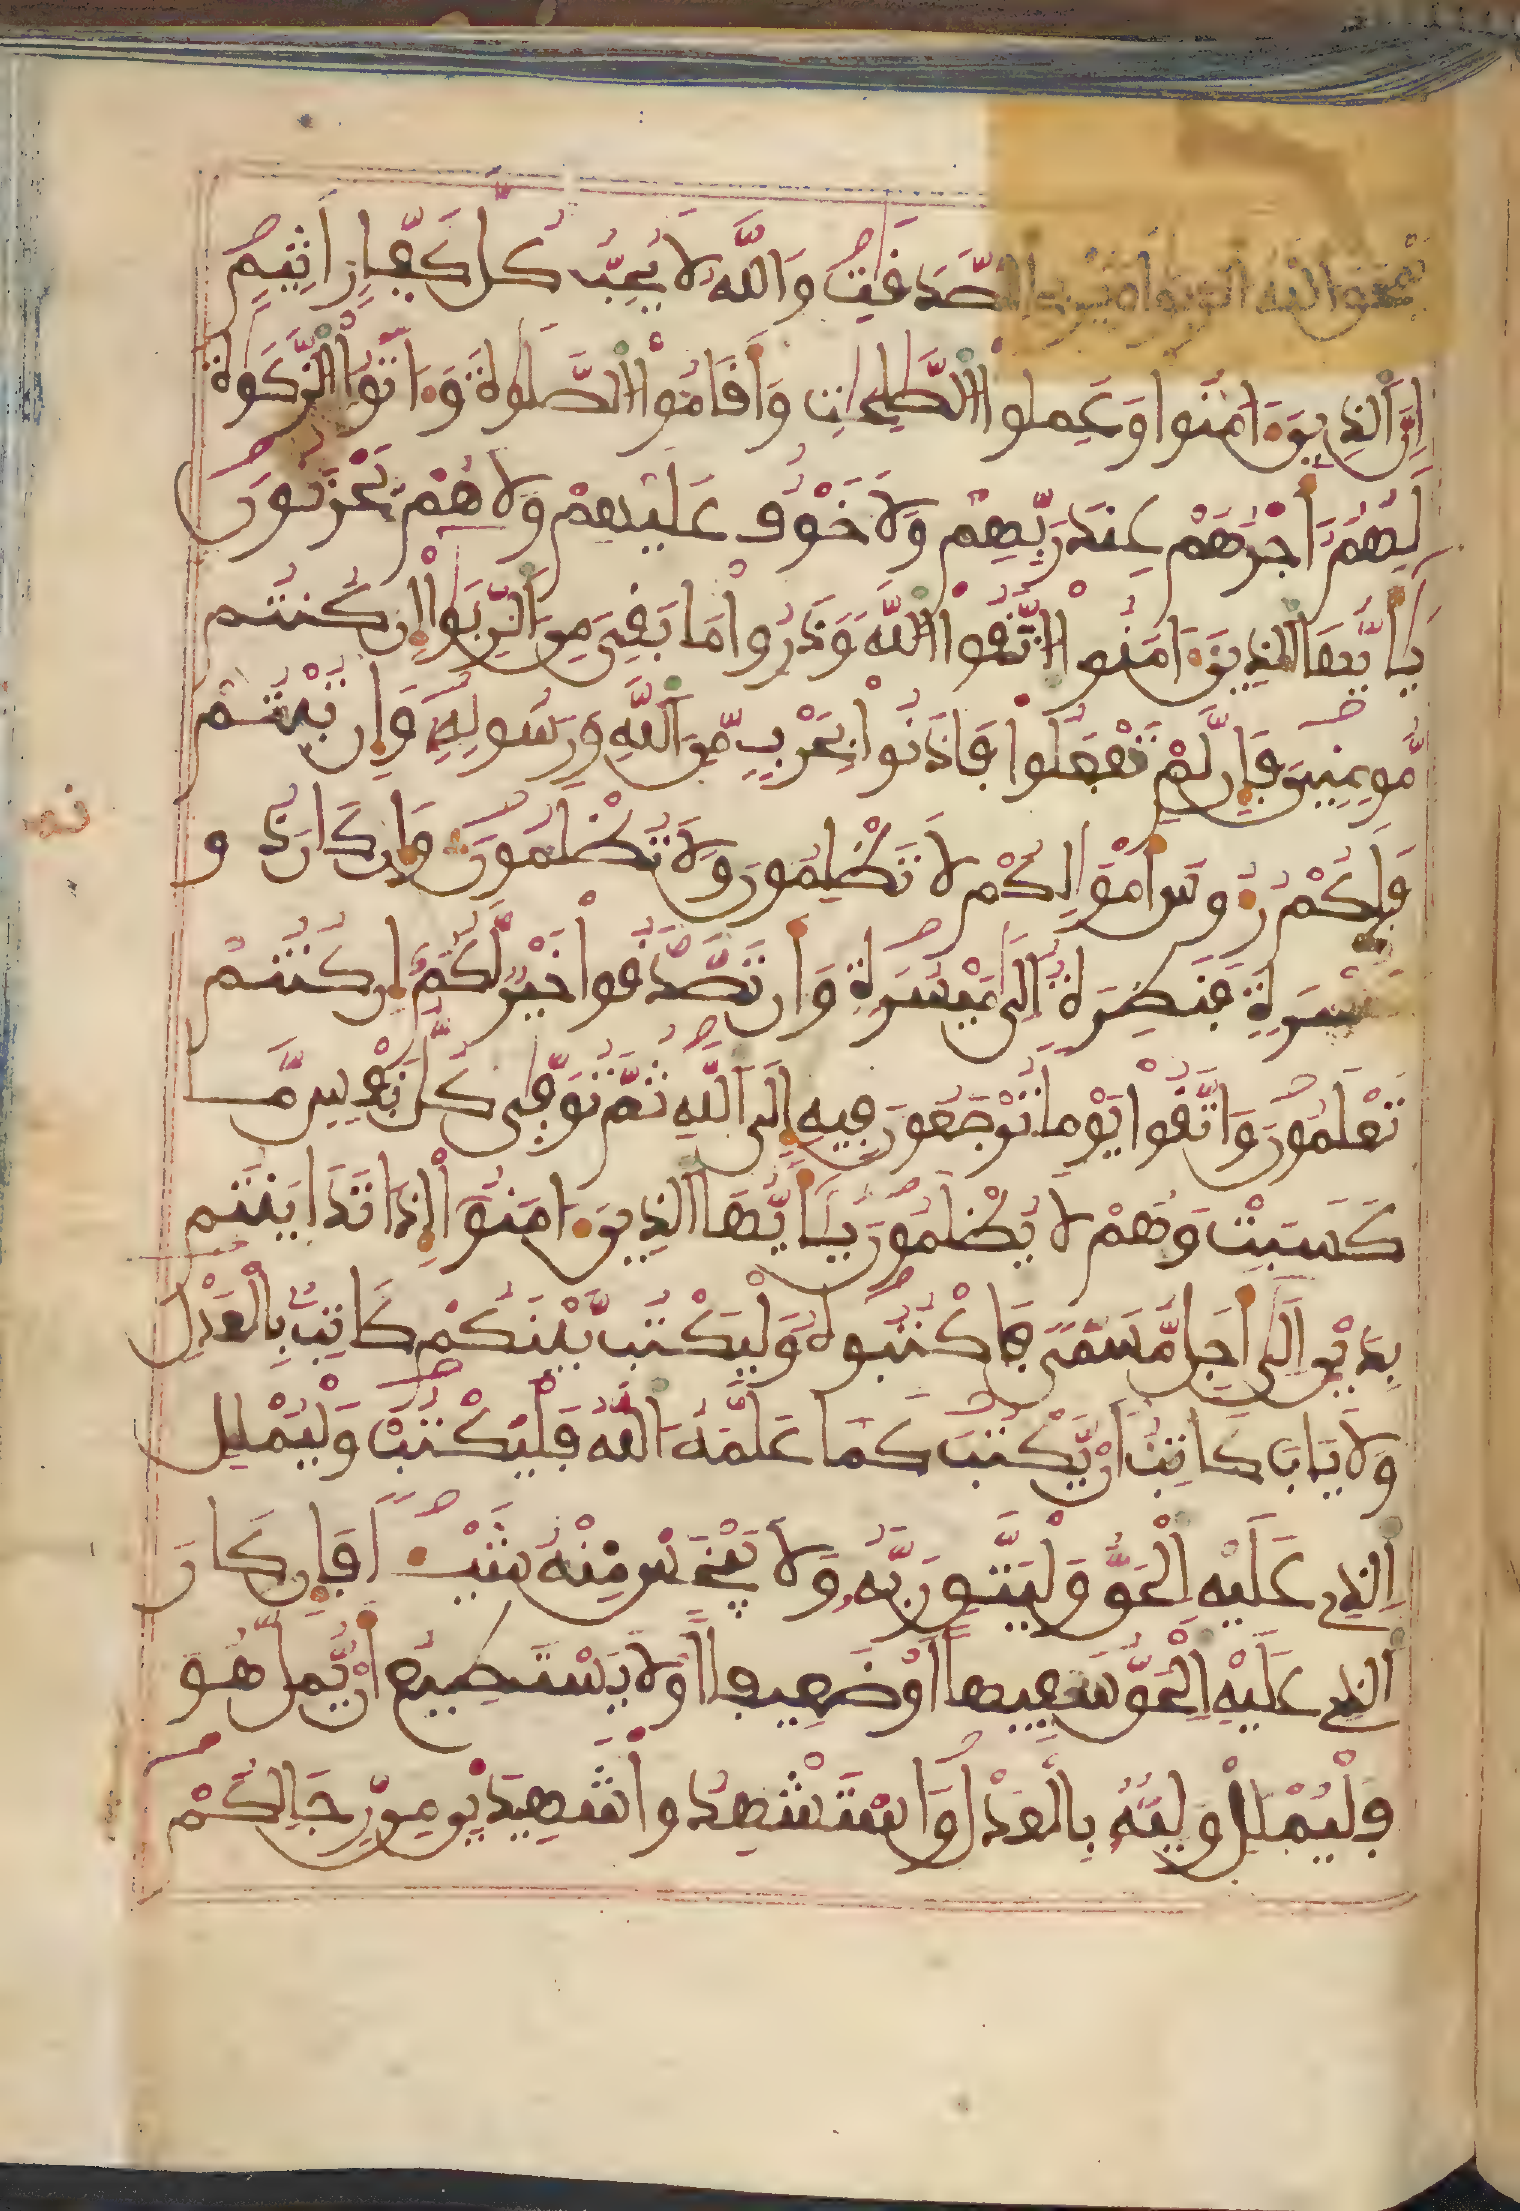 يمحق الله الربوا ويربي الصدقت والله لا يحب كل كفار اثيم
ان الذين ءامنوا وعملوا الصلحات وأقاموا الصلوة وءاتوا الزكوة
لهم أجرهم عند ربهم ولا خوف عليهم ولا هم يحزنون
يأيها الذين ءامنوا اتقوا الله وذروا ما بقى من الربوا إن كنتم
مومنين فإن لم تفعلوا فاذنوا بحرب من الله ورسوله وإن تبتم
فلكم رءوس أموالكم لا تظلمون ولا تظلمون وإن كان ذو
عسرة فنظرة إلى ميسرة وأن تصدقوا خير لكم إن كنتم
تعلمون واتقوا يوما ترجعون فيه إلى الله ثم توفى كل نفس ما
كسبت وهم لا يظلمون يأيها الذين ءامنوا إذا تداينتم
بدين إلى أجل مسمى فاكتبوه وليكتب بينكم كاتب بالعدل
ولا ياب كاتب أن يكتب كما علمه الله فليكتب وليملل
الذي عليه الحق وليتق ربه ولا يبخس منه شيئا فإن كان
الذي عليه الحق سفيها أو ضعيفا أو لا يستطيع أن يمل هو
فليملل وليه بالعدل واستشهدوا شهيدين من رجالكم